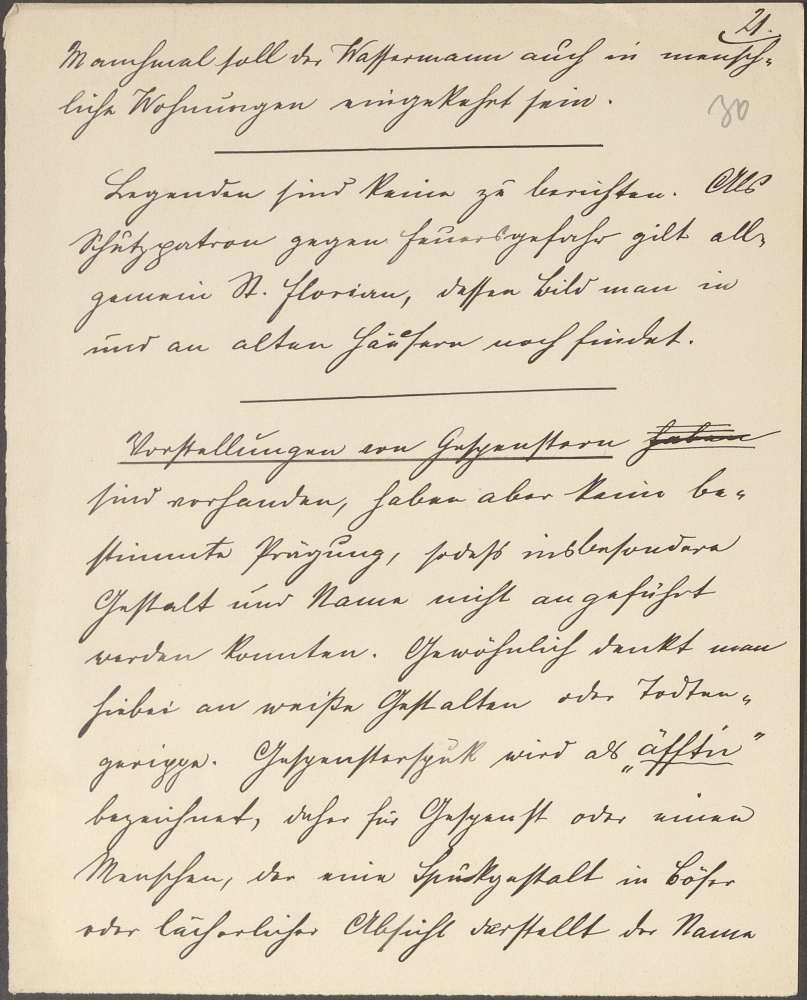 21.
Manchmal soll der Wassermann auch in mensch-
liche Wohnungen eingekehrt sein.
30
Legenden sind keine zu berichten. Als
Schutzpatron gegen Feuersgefahr gilt all-
gemein St. Florian, dessen Bild man in
und an alten Häusern noch findet.
Vorstellungen von Gespenstern haben
sind vorhanden, haben aber keine be-
stimmte Prägung, sodaß insbesondere
Gestalt und Name nicht angeführt
werden konnten. Gewöhnlich denkt man
hiebei an weiße Gestalten oder Todten-
gerippe. Gespensterspuk wird als „äfftn"
bezeichnet, daher für Gespenst oder einen
Menschen, der eine Spukgestalt in böser
oder lächerlicher Absicht darstellt der Name